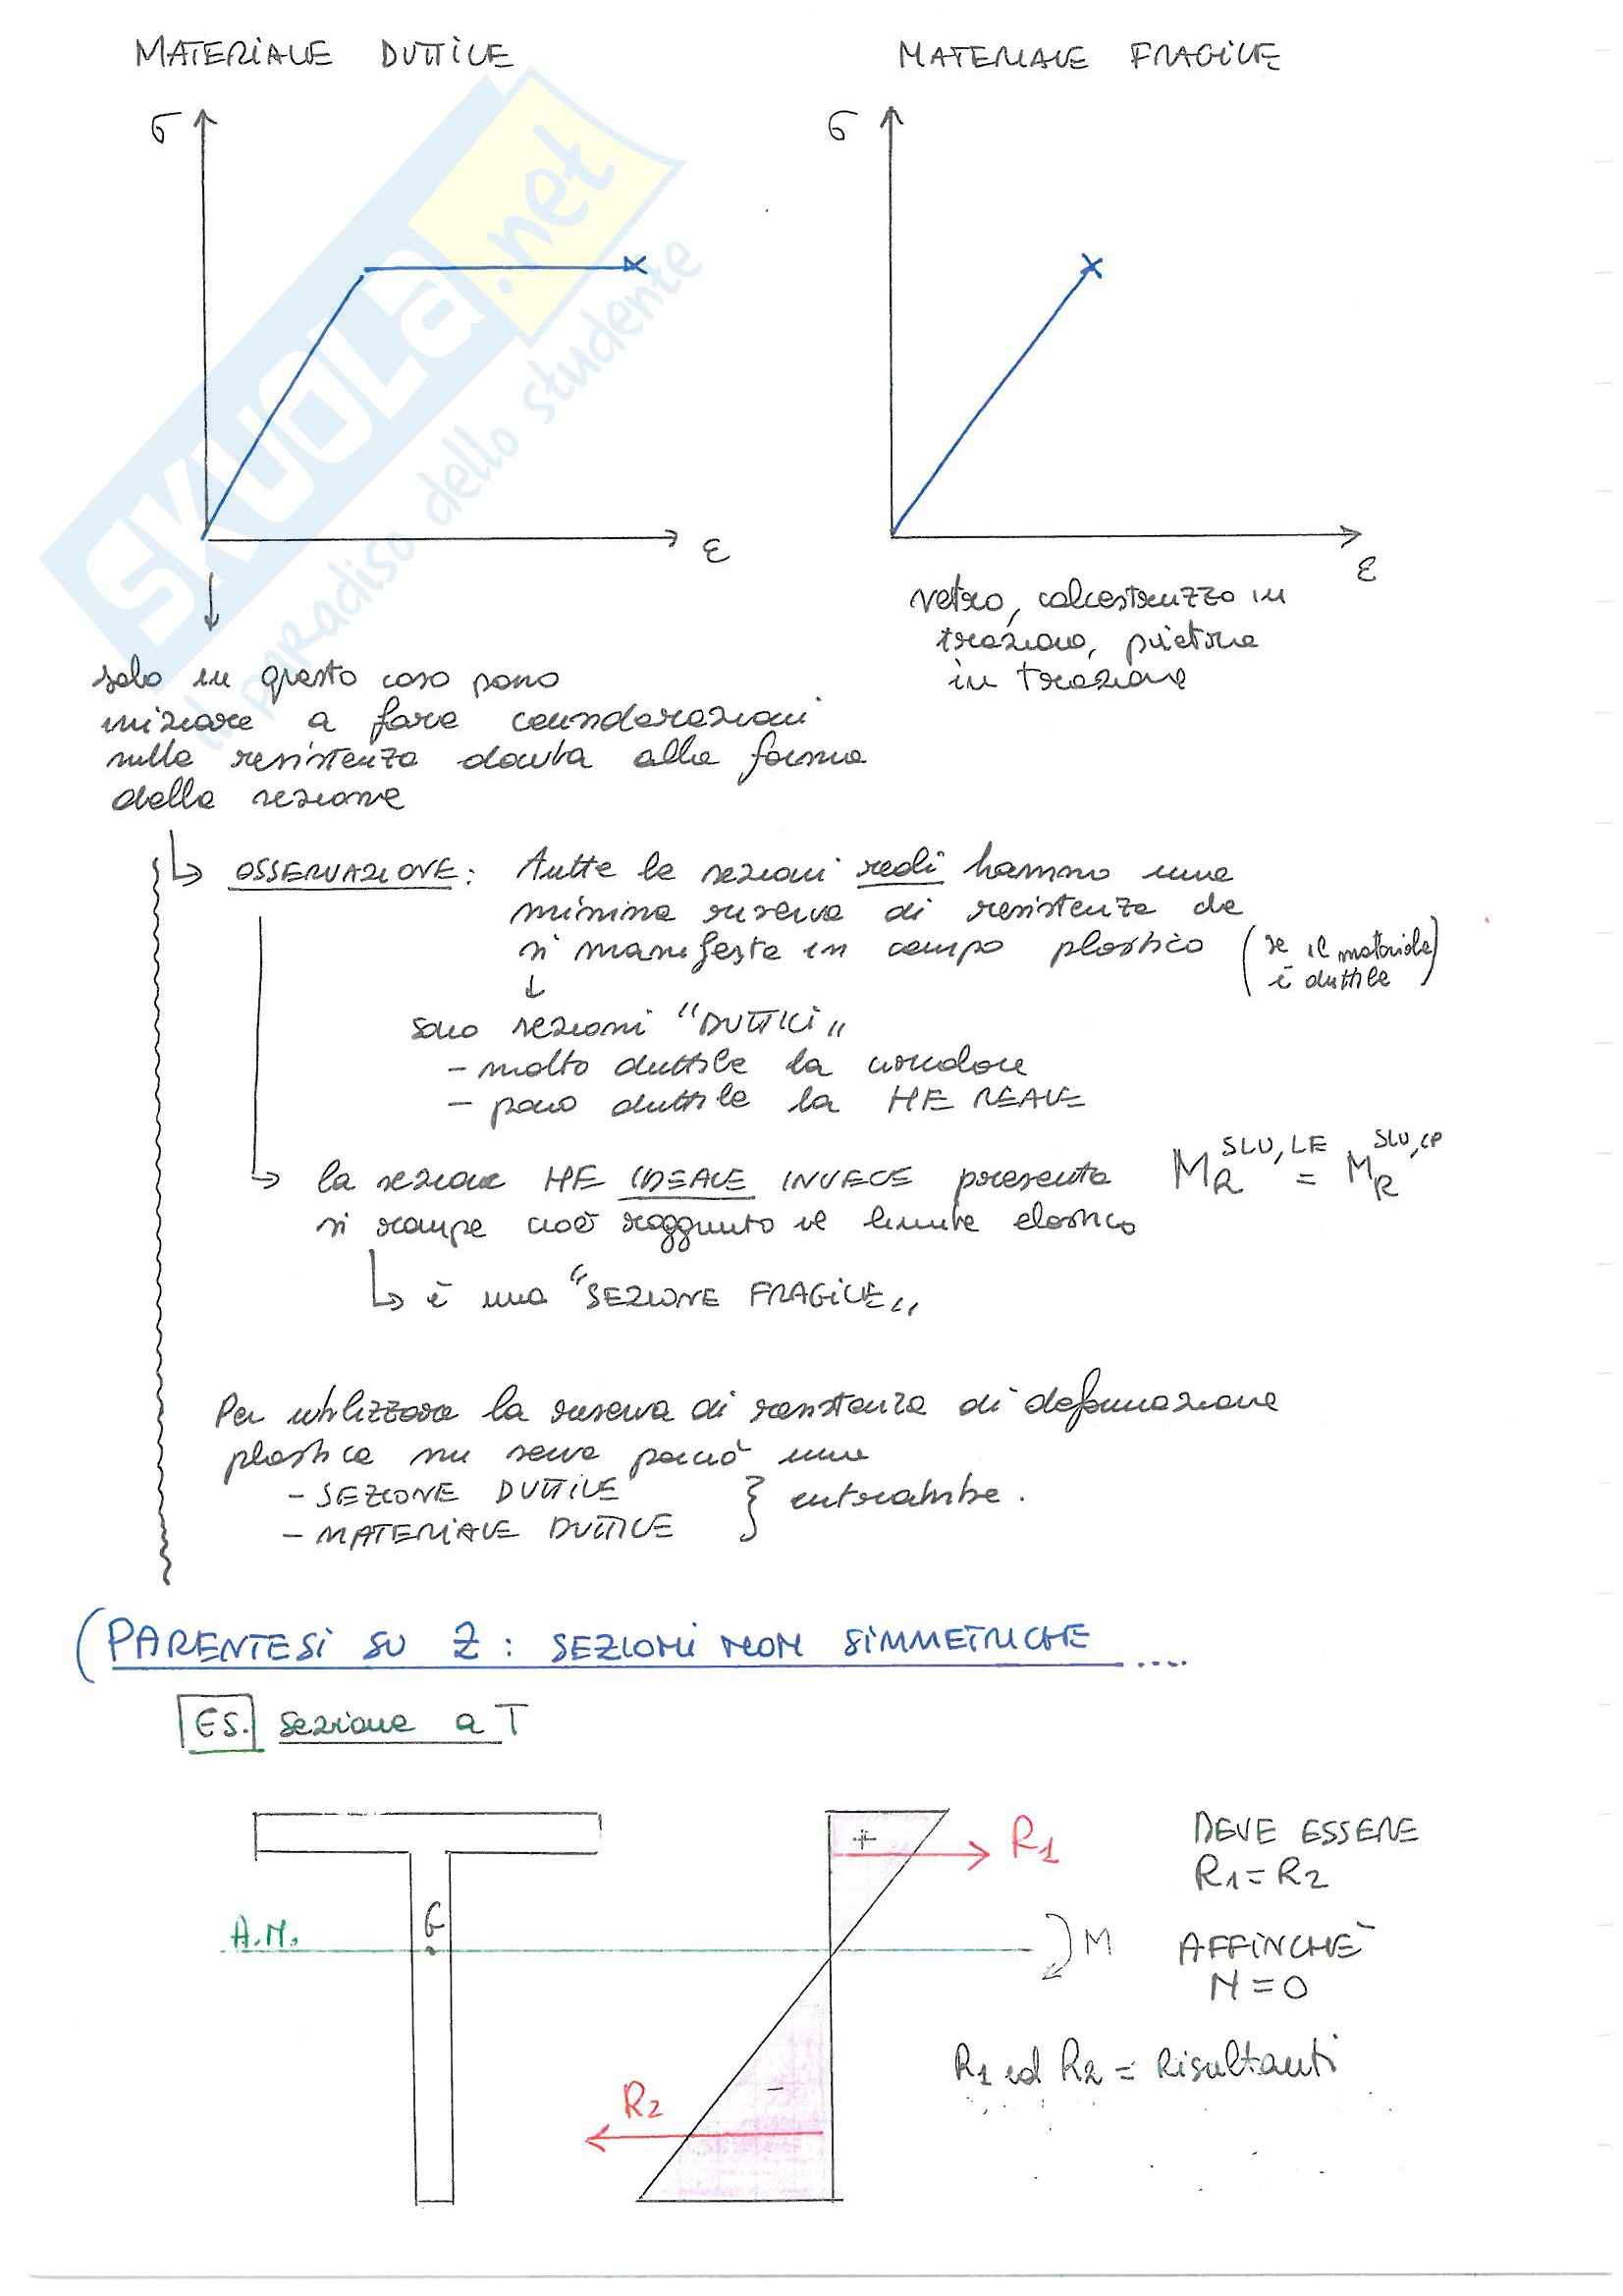 MATERIALE DUTTILE
MATERIALE FRAGILE
σ
σ
ε
ε
SKUOLA.net
il paradiso dello studente
vetro, calcestruzzo in
trazione, pietra
in trazione
solo in questo caso posso
iniziare a fare considerazioni
sulla resistenza dovuta alla forma
della sezione
OSSERVAZIONE: Tutte le sezioni reali hanno una
minima riserva di resistenza che
si manifesta in campo plastico (se il materiale
è duttile)
sono sezioni "DUTTILI"
- molto duttile la circolare
- poco duttile la HE REALE
la sezione HE IDEALE INVECE presenta M_R^SLU,LE = M_R^SLU,CP
si rompe cioè raggiunto il limite elastico
è una "SEZIONE FRAGILE"
Per utilizzare la riserva di resistenza di deformazione
plastica mi serve perciò una
- SEZIONE DUTTILE
- MATERIALE DUTTILE } entrambe.
(PARENTESI SU Z : SEZIONI NON SIMMETRICHE ....
ES. Sezione a T
+
R1
DEVE ESSERE
R1 = R2
G
A.N.
M
AFFINCHÈ
N = 0
R1 ed R2 = Risultanti
-
R2